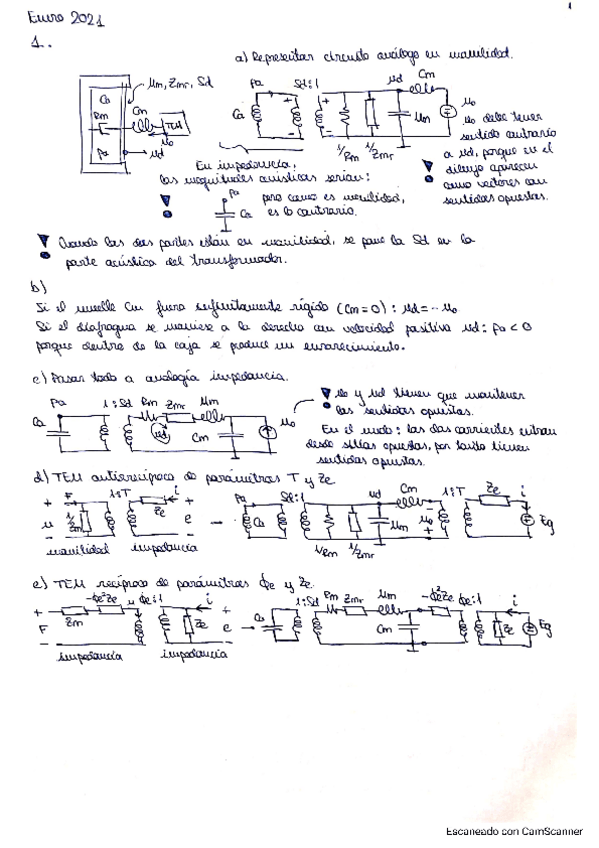 Enero 2021
1
1..
a) Representar circuito análogo en movilidad.
Mm, Zmr, Sd
Ca
Rm
Cm
TEM
uo
Pa
ud
Pa
Sd:1
ud
Cm
Ca
1/Rm
1/Zmr
Mm
uo
uo debe tener
sentido contrario
a ud, porque en el
dibujo aparecen
como vectores con
sentidos opuestos.
En impedancia,
las magnitudes acústicas serían:
Pa
Ca
pero como es movilidad,
es lo contrario.
Cuando las dos partes están en movilidad, se pone la Sd en la
parte acústica del transformador.
b)
Si el muelle Cm fuera infinitamente rígido (Cm=0): ud=-uo
Si el diafragma se moviese a la derecha con velocidad positiva ud: Pa<0
porque dentro de la caja se produce un enrarecimiento.
c) Pasar todo a analogía impedancia.
Pa
1:Sd
Rm Zmr Mm
Ca
ud
Cm
uo
uo y ud tienen que mantener
los sentidos opuestos.
En el nodo: las dos corrientes entran
desde sitios opuestos, por tanto tienen
sentidos opuestos.
d) TEM antirecíproco de parámetros T y Ze
+ F 1:T Ze i +
u 1/Zm e
- -
movilidad impedancia
Pa Sd:1 ud Cm 1:T Ze i
Ca 1/Rm 1/Zmr Mm uo Eg
e) TEM recíproco de parámetros ϕe y Ze.
+ Zm -ϕe²Ze u ϕe:1 i +
F Ze e
- -
impedancia impedancia
Ca 1:Sd Rm Zmr Mm -ϕe²Ze ϕe:1 i
Cm Ze Eg
Escaneado con CamScanner